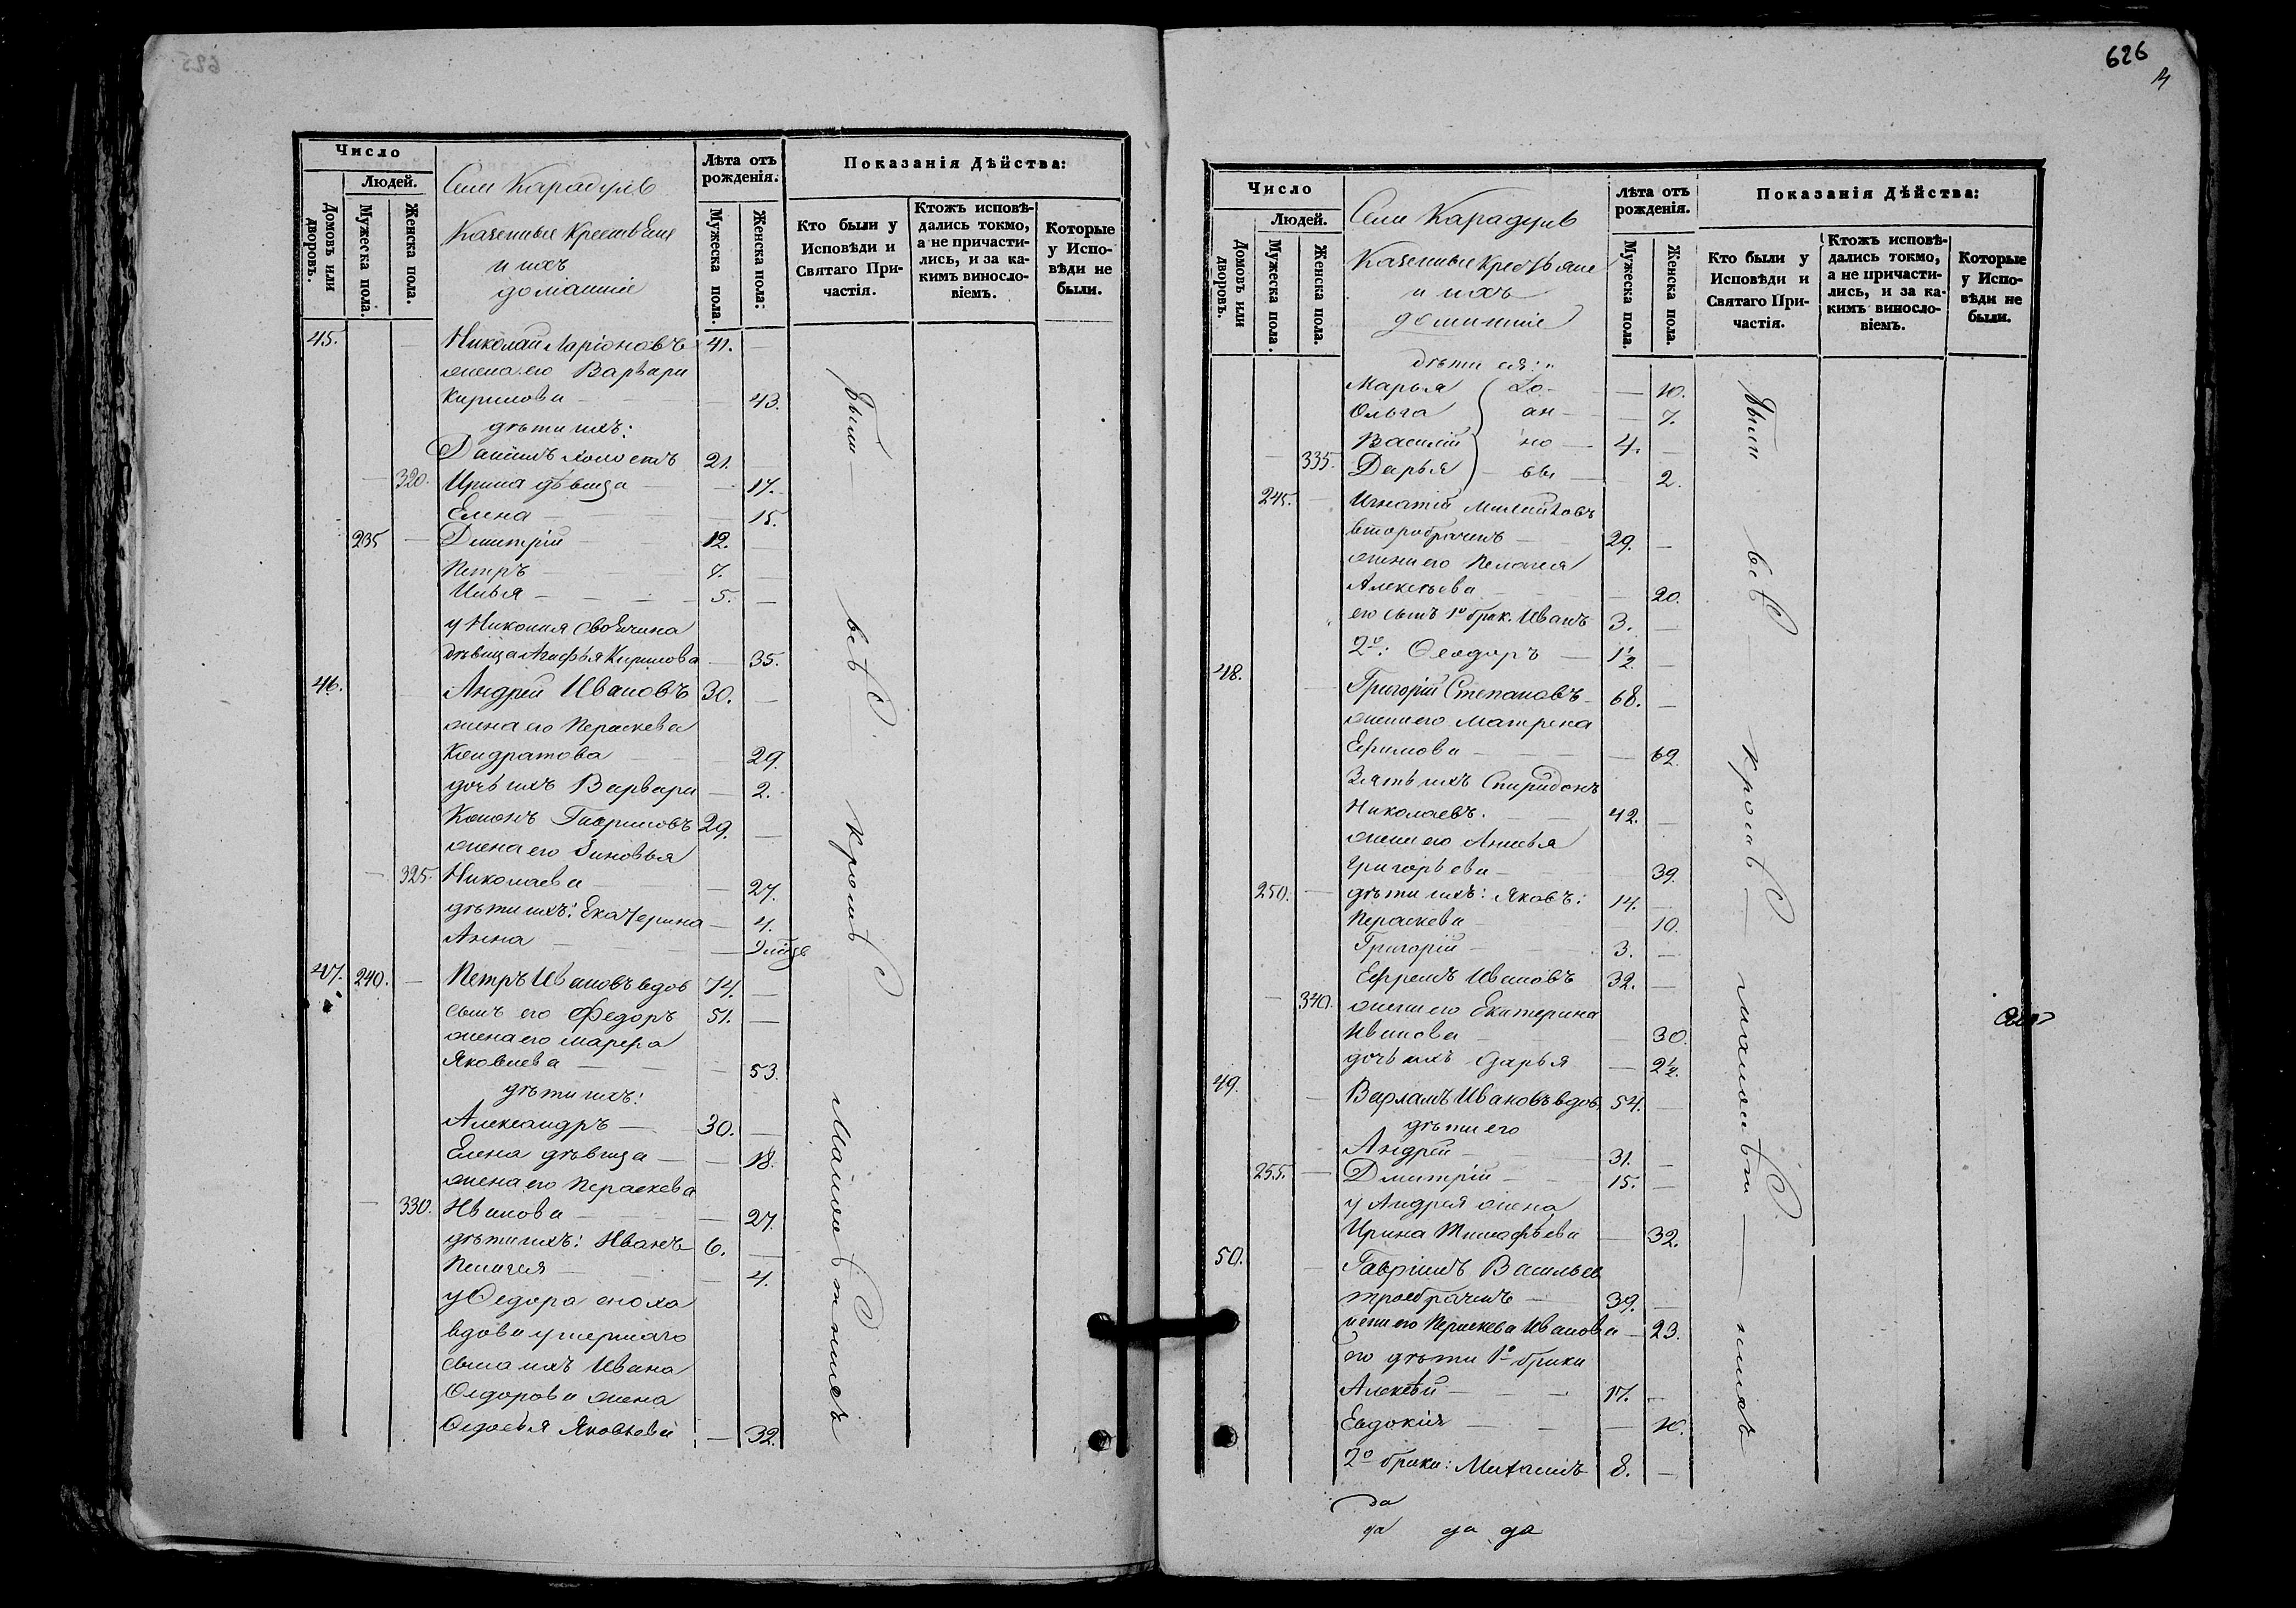 625
Число
Людей.
Домовъ или дворовъ.
Мужеска пола.
Женска пола.
Села Карадулъ
Казенные Крестьяне
и ихъ
домашніе
Лѣта отъ рожденія.
Мужеска пола.
Женска пола:
Показанія Дѣйства:
Кто были у Исповѣди и Святаго При-
частія.
Ктожъ исповѣ-
дались токмо,
а не причасти-
лись, и за ка-
кимъ винос­ло-
віемъ.
Которые
у Испо-
вѣди не
были.
45. — Николай Ларіоновъ 41. —
жена его Варвара
Кирилова — 43.
дѣти ихъ:
Даніилъ холостъ 21.
— 320. Ирина дѣвица — 17.
Елена — 15.
235 — Дмитрій 12.
Петръ 7. —
Илья 5. —
у Николая своячина
дѣвица Агафья Кирилова — 35.
46. Андрей Ивановъ 30. —
жена его Параскева
Кондратова — 29.
дочь ихъ Варвара — 2.
Кононъ Гавриловъ 29. —
жена его Зиновья
— 325. Николаева — 27.
дѣти ихъ: Екатерина — 4.
Анна —
47. 240. — Петръ Ивановъ вдов 74. —
сынъ его Федоръ 51. —
жена его Марфа
Яковлева — 53.
дѣти ихъ:
Александръ — 30. —
Елена дѣвица — 18.
жена его Параскева
— 330. Иванова — 27.
дѣти ихъ: Иванъ 6. —
Пелагея — 4.
у Ѳедора сноха
вдова умершаго
сына ихъ Ивана
Ѳедорова жена
Ѳедосья Яковлева — 32.
Были всѣ кромѣ малолѣтнихъ
626
Число
Людей.
Домовъ или дворовъ.
Мужеска пола.
Женска пола.
Села Карадулъ
Казенные Крестьяне
и ихъ
домашніе
Лѣта отъ рожденія.
Мужеска пола.
Женска пола.
Показанія Дѣйства:
Кто были у
Исповѣди и
Святаго При-
частія.
Ктожъ исповѣ-
дались токмо,
а не причасти-
лись, и за ка-
кимъ винос­ло-
віемъ.
Которые
у Испо-
вѣди не
были.
дѣти ея:
Марья — 10.
Ольга — 7.
Василій 4. —
— 335. Дарья — 2.
245. — Игнатій
второбрачный 29. —
жена его Пелагея
Алексѣева — 20.
его сынъ 1º брак. Иванъ 3. —
2º: Ѳеодоръ 1½ —
48. Григорій Степановъ 68. —
жена его Матрена
Ефимова — 62.
Зять ихъ Спиридонъ
Николаевъ. 42. —
жена его Анисья
Григорьева — 39.
250. — дѣти ихъ: Яковъ: 14. —
Параскева — 10.
Григорій 3. —
Ефремъ Ивановъ 32. —
— 340. жена его Екатерина
Иванова — 30.
дочь ихъ Дарья — 2½.
49. — Варламъ Ивановъ вдов. 54. —
дѣти его
Андрей 31. —
255. — Дмитрій 15. —
у Андрея жена
Ирина Тимофѣева — 32.
50. — Гавріилъ Васильев
троебрачный 39. —
жена его Параскева Иванова — 23.
его дѣти 1º брака
Алексѣй 17. —
Евдокія — 10.
2º брака: Михаилъ 8. —
Были всѣ — кромѣ — малолѣтнихъ
да
да да да